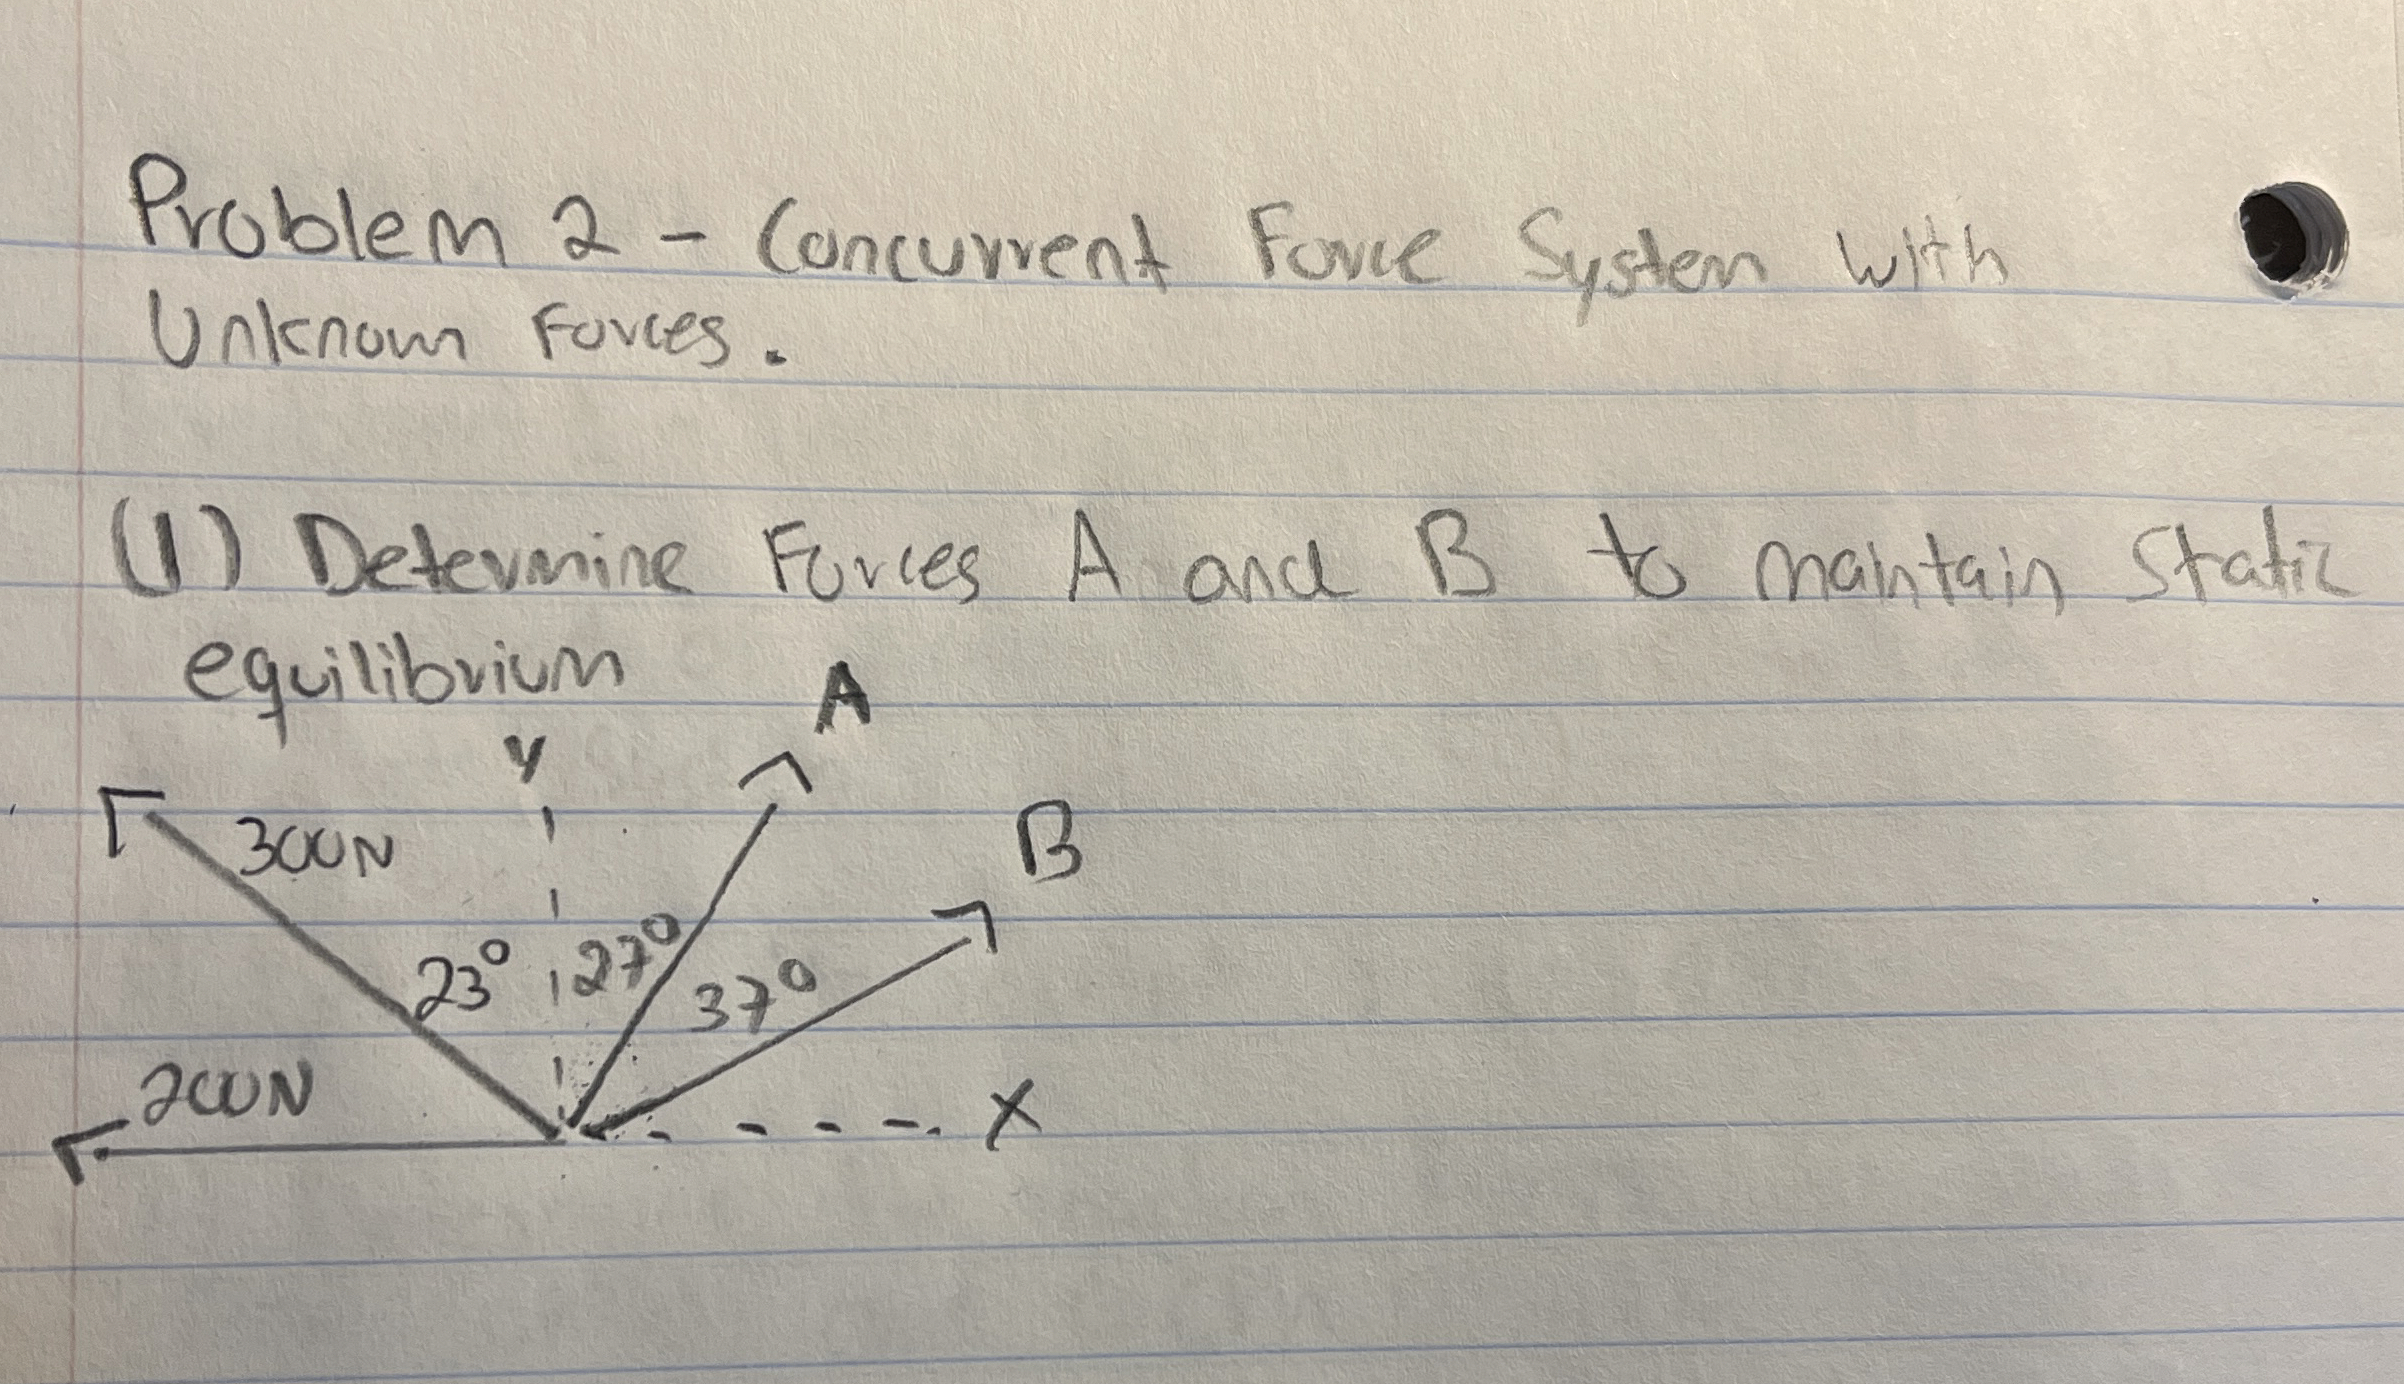 Problem 2 - Concurrent Force System with
Unknown Forces.
(1) Determine Forces A and B to maintain Static
equilibrium
A
y
300N
B
23° 27°
37°
200N
X